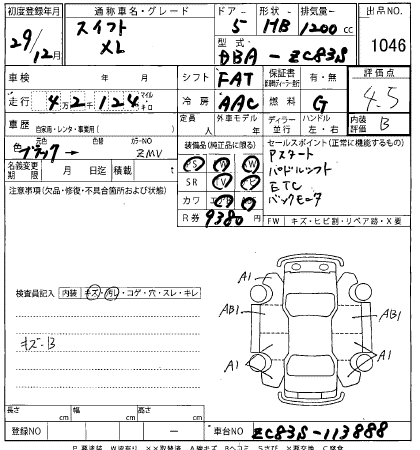 初度登録年月 通称車名・グレード ドア― 形状― 排気量― 出品NO.
29/12月 スイフト XL 5 HB 1200cc 1046
型式― DBA-ZC83S
車検 年 月 シフト FAT 保証書 有・無 評価点
走行 4万2千124 マイル キロ 冷房 AAC 燃料 G 4.5
車歴 自家用・レンタ・事業用( ) 定員 人 外車モデル 年 ディーラー 並行 ハンドル 左・右 内装評価 B
色 ブラック→ 色替 カラーNO ZMV
装備品(純正品に限る) セールスポイント(正常に機能するもの)
名義変更期限 月 日迄 積載 t
PS AW
SR
カワ
R券 9380円
Pスタート
パドルシフト
ETC
バックモニタ
注意事項(欠品・修復・不具合箇所および状態)
FW キズ・ヒビ割・リペア跡・X
検査員記入 内装 キズ・汚レ・コゲ・穴・スレ・キレ
キズ・B
A1
A1
AB1
AB1
A1
A1
長さ cm 幅 cm 高さ cm
登録NO ― 車台NO ZC83S-113888